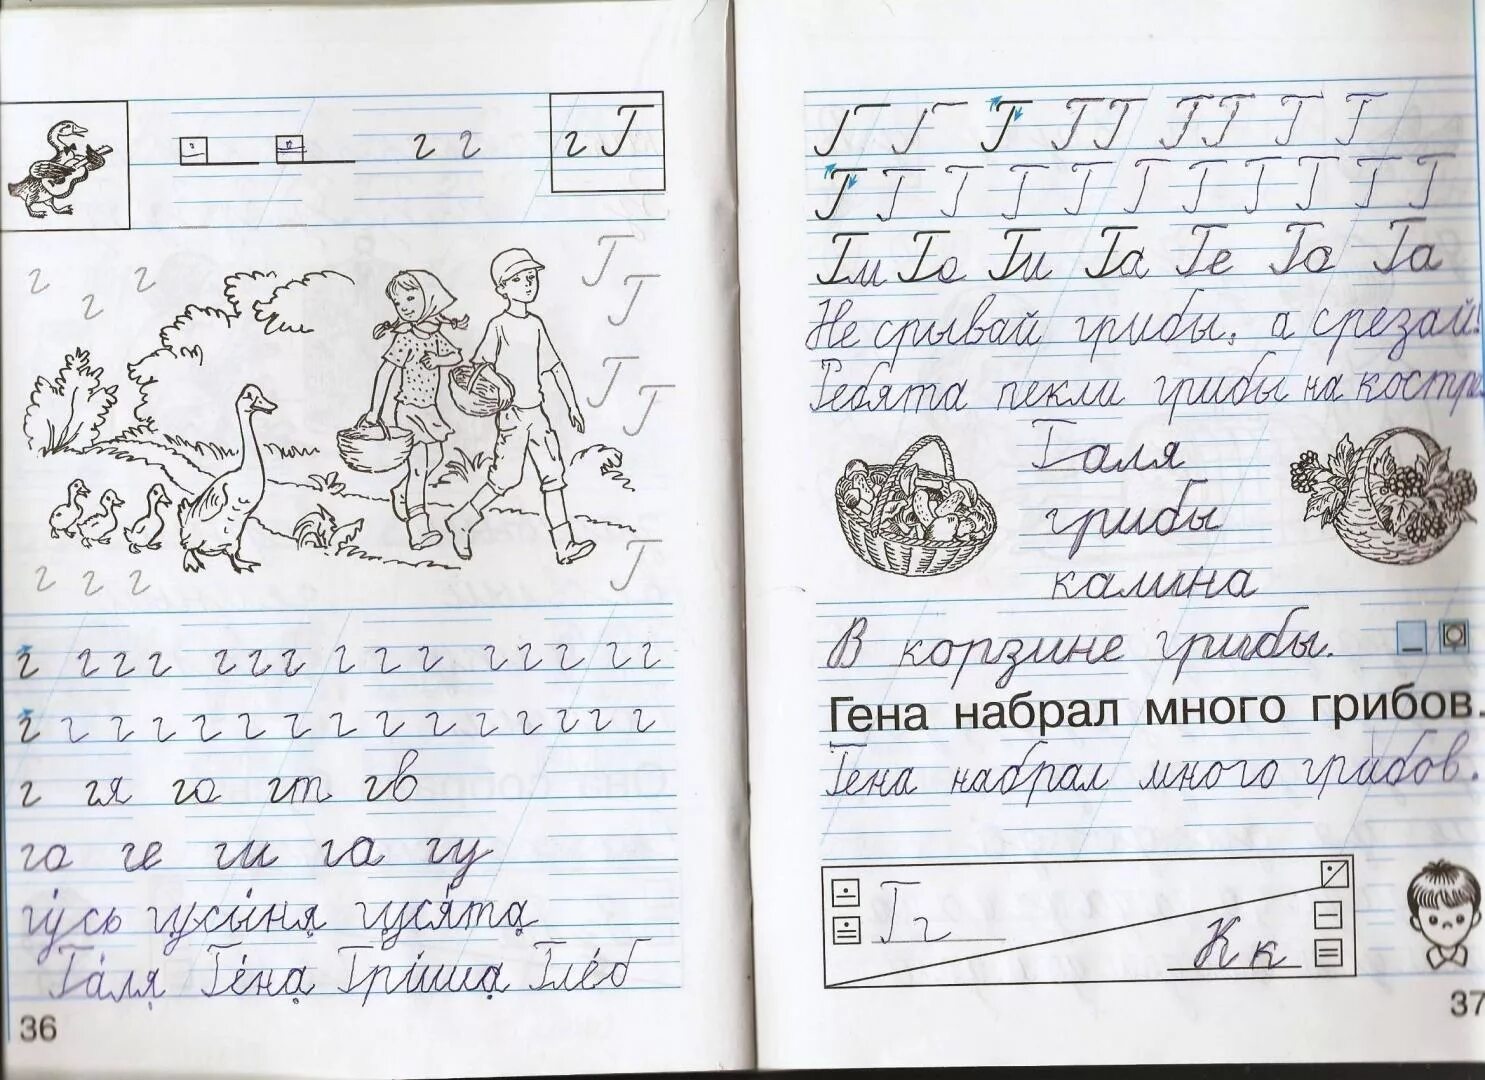 г г г Г
г г Г
г Г
Г
Г
г г г Г
г г г г г г г г г г г г г г г
г г г г г г г г г г г г г г
г гя го гт гв
го ге ги га гу
гу́сь гусы́ня гуся́та
Га́ля Ге́на Гри́ша Гле́б
36
Г Г Г Г Г Г Г Г Г
Г Г Г Г Г Г Г Г Г Г
Гм Го Ги Га Ге Го Га
Не срывай грибы, а срезай!
Ребята пекли грибы на костре
Галя
грибы
калина
В корзине грибы.
Гена набрал много грибов.
Гена набрал много грибов.
Г г
К к
37